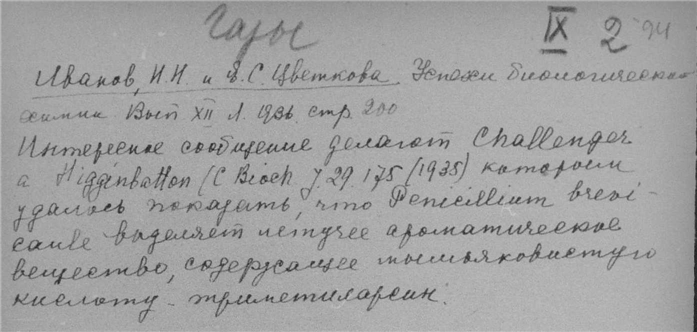 Газы
IX 2 94
Иванов, Н.Н. и Е.С. Цветкова. Успехи биологической
химии Вып XII Л. 1936 стр. 200
Интересное сообщение делают Challenger
a Higginbotton (C Bioch. J. 29. 175 (1935) которым
удалось показать, что Penicillium brevi-
caule выделяет летучее ароматическое
вещество, содержащее мышьяковистую
кислоту - триметиларсин.